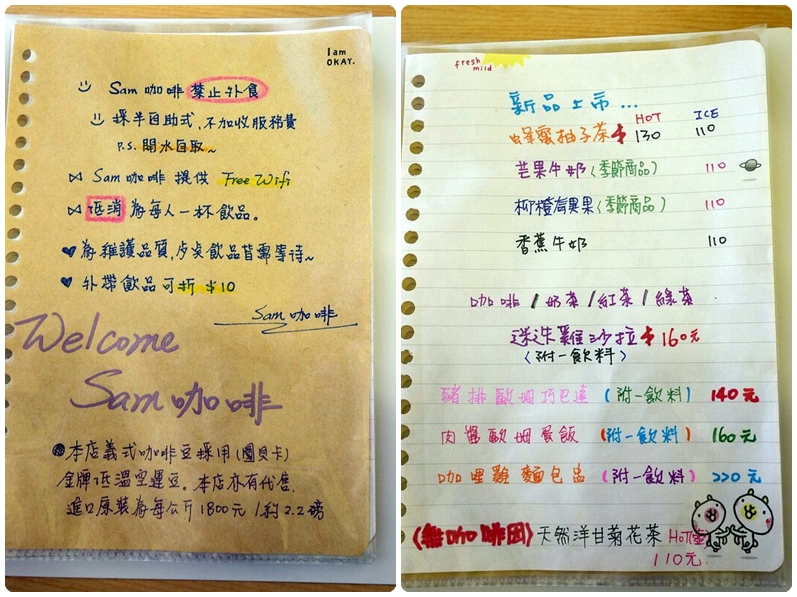 I am
OKAY.
Sam 咖啡 禁止外食
採半自助式,不加收服務費
P.S. 開水自取~
Sam 咖啡 提供 Free Wifi
低消 為每人一杯飲品。
為維護品質,
飲品皆需等待~
外帶飲品可折 $10
Sam 咖啡
Welcome
Sam 咖啡
本店義式咖啡豆採用(圖貝卡)
金牌低溫空運豆。本店亦有代售.
進口原裝為每公斤1800元/約2.2磅
fresh
mild
新品上市...
HOT ICE
蜂蜜柚子茶 130 110
芒果牛奶(季節商品) 110
柳橙百異果(季節商品) 110
香蕉牛奶 110
咖啡/奶茶/紅茶/綠茶
迷迭雞沙拉 160元
(附一飲料)
豬排歐姆巧巴達 (附一飲料) 140元
肉醬歐姆蛋飯 (附一飲料) 160元
咖哩雞麵包盅 (附一飲料) 220元
(無咖啡因)天然洋甘菊花茶 HOT(壺)
110元